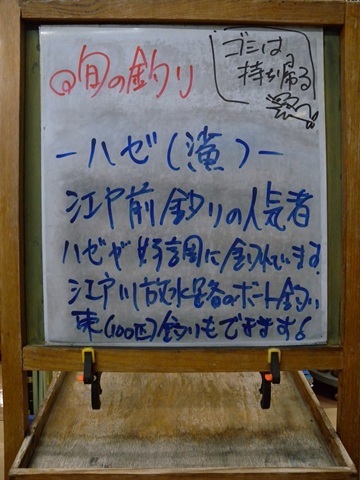 ◎旬の釣り
ゴミは
持ち帰る
ーハゼ( )ー
江戸前釣りの人気者
ハゼが好調に釣れています。
江戸川放水路のボート釣り
東(100匹)釣りもできます。